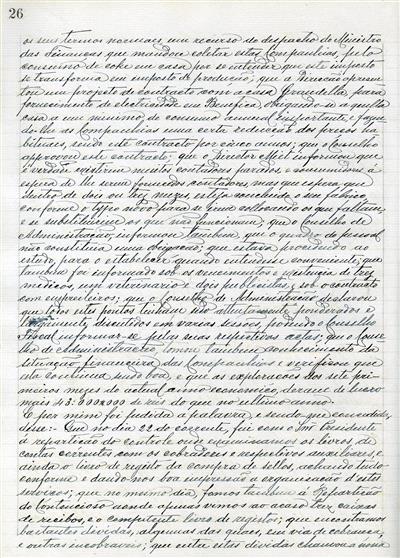 26
os seus termos normaes um recurso do despacho do Ministro
das Finanças que mandou coletar estas Companhias, pelo
consumo de coke em casa por se entender que este imposto
se transforma em imposto de producção; que a Direcção apresen-
tou um projecto de contracto com a casa Grandella para
fornecimento de electricidade em Bemfica, obrigando-se aquella
casa a um minimo de consumo annual importante, e fazen-
do-lhe as Companhias uma certa reducção dos preços ha-
bituaes, sendo este contracto por cinco annos; que o Conselho
approvou este contracto; que o Director informou que
é verdade existirem muitos contadores parados e consumidores á
espera de lhe serem fornecidos contadores, mas que espera que
dentro de dois ou tres mezes esteja concluido o seu fabrico
conforme o typo novo para se irem collocando os que faltam
e se substituirem os que não funcionam; que o Conselho de
Administração, informou tambem, que o quadro do pessoal
não constitue uma obrigação; que estava procedendo ao
estudo, para o estabelecer quando entendesse conveniente; que
tambem foi informado sobre os vencimentos e existencia de tres
medicos, um veterinario e dois publicistas, e sobre o contracto
com empreiteiros; que o Conselho de Administração declarou
que todos estes pontos tinham sido attentamente ponderados e
largamente discutidos em varias sessões, podendo o Conselho
Fiscal informar-se pelas suas respectivas actas; que o Conse-
lho de Administração, tomou tambem conhecimento da
situação financeira das Companhias e verificou que
ella continua sendo boa e que as explorações dos sete pri-
meiros mezes do actual anno economico, deram de lucro
mais 43:000$000 de réis do que no ultimo anno.
E por mim foi pedida a palavra, e sendo-me concedida,
disse: - Que no dia 22 do corrente, fui com o Snr. Presidente
á repartição do controle onde examinamos os livros, de
contas correntes com os cobradores e respectivos auxiliares, e
ainda o livro de registo da compra de sellos, achando tudo
conforme e dando-nos boa impressão a organisação d'estes
serviços; que no mesmo dia, fomos tambem á Repartição
do Contencioso aonde apenas vimos ao acaso tres caixas
de recibos, e o competente livro de registos; que encontramos
bastantes dividas, algumas das quaes, em via de cobrança,
e outras incobraveis; que entre estas dividas chamou a nossa